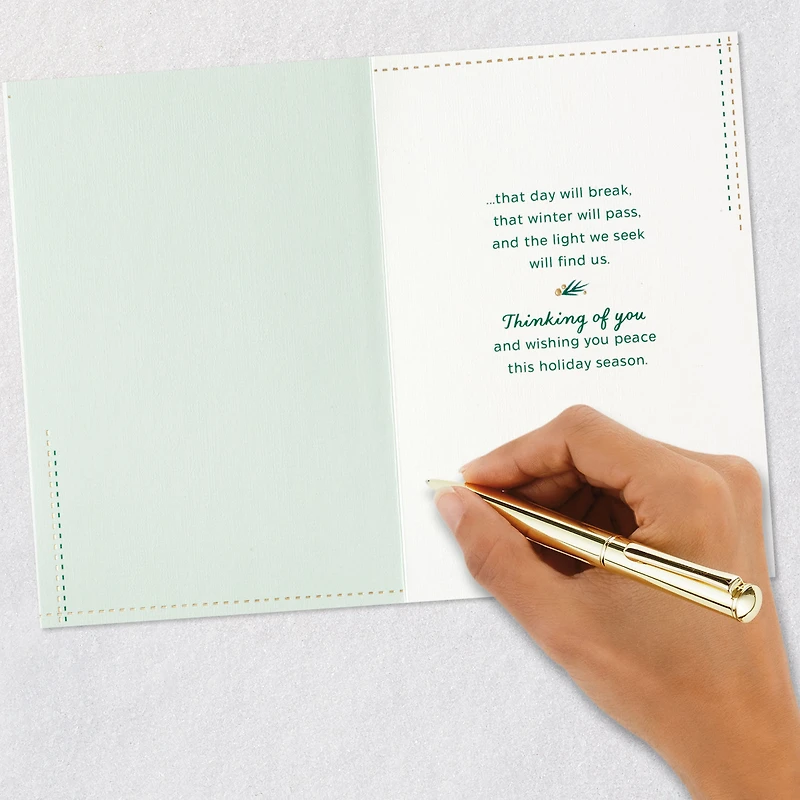 ...that day will break,
that winter will pass,
and the light we seek
will find us.
Thinking of you
and wishing you peace
this holiday season.